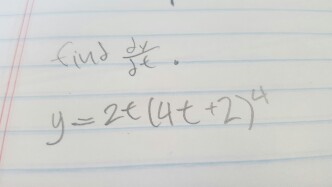 find dy/dt.
y=2t(4t+2)^4